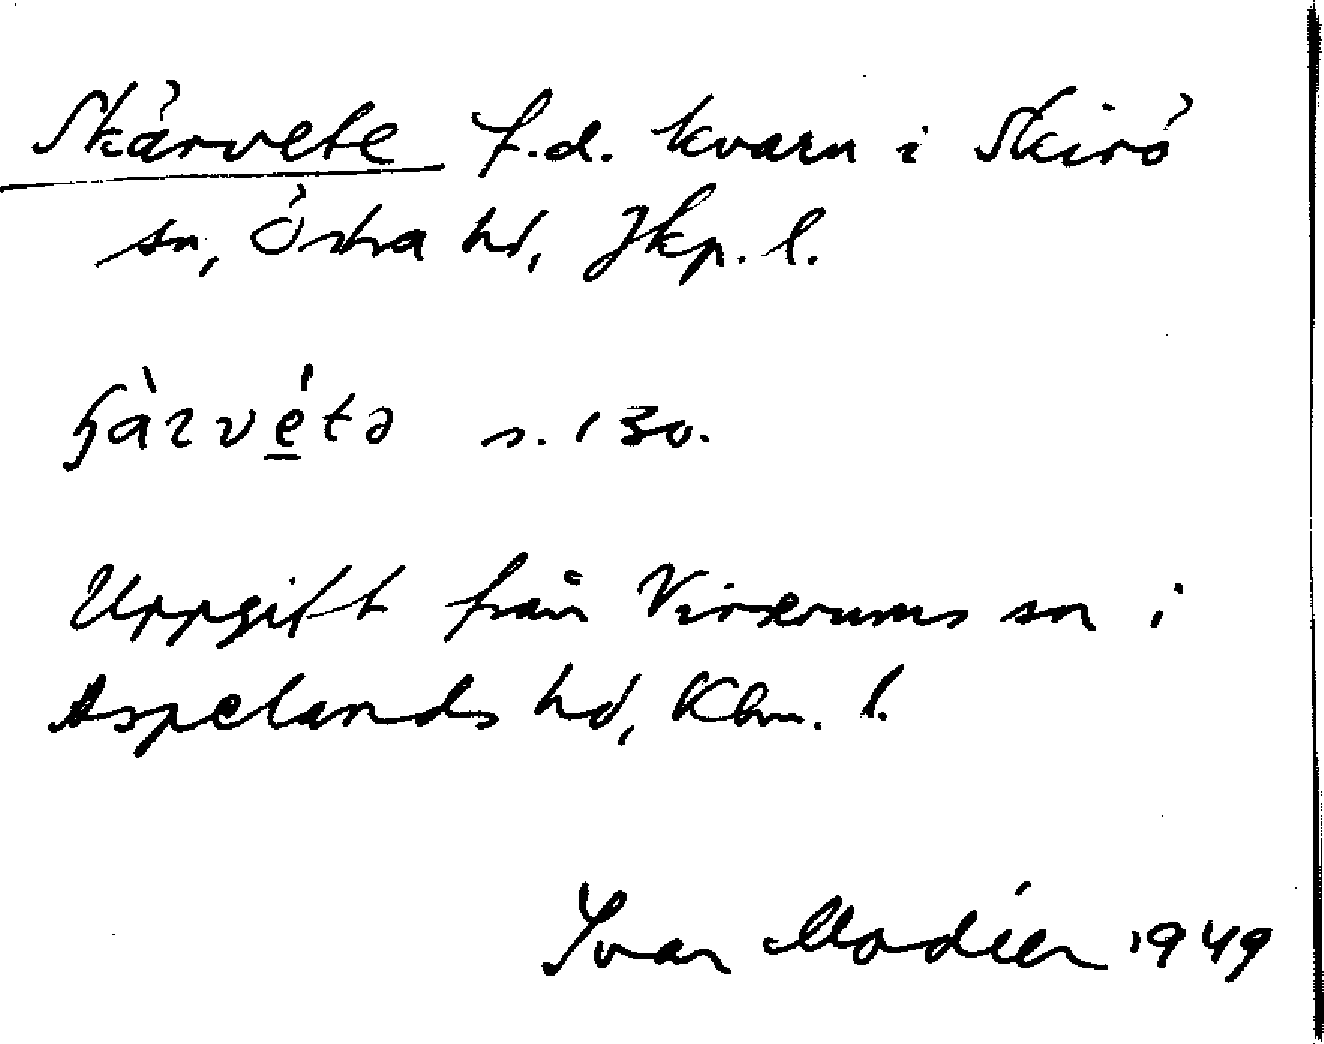 Skärvete f.d. kvarn i Skirö
sn, Östra hd, Jkp. l.
s. 130.
Uppgift från Virserums sn i
Aspelands hd, Klm. l.
Ivar Modéer 1949